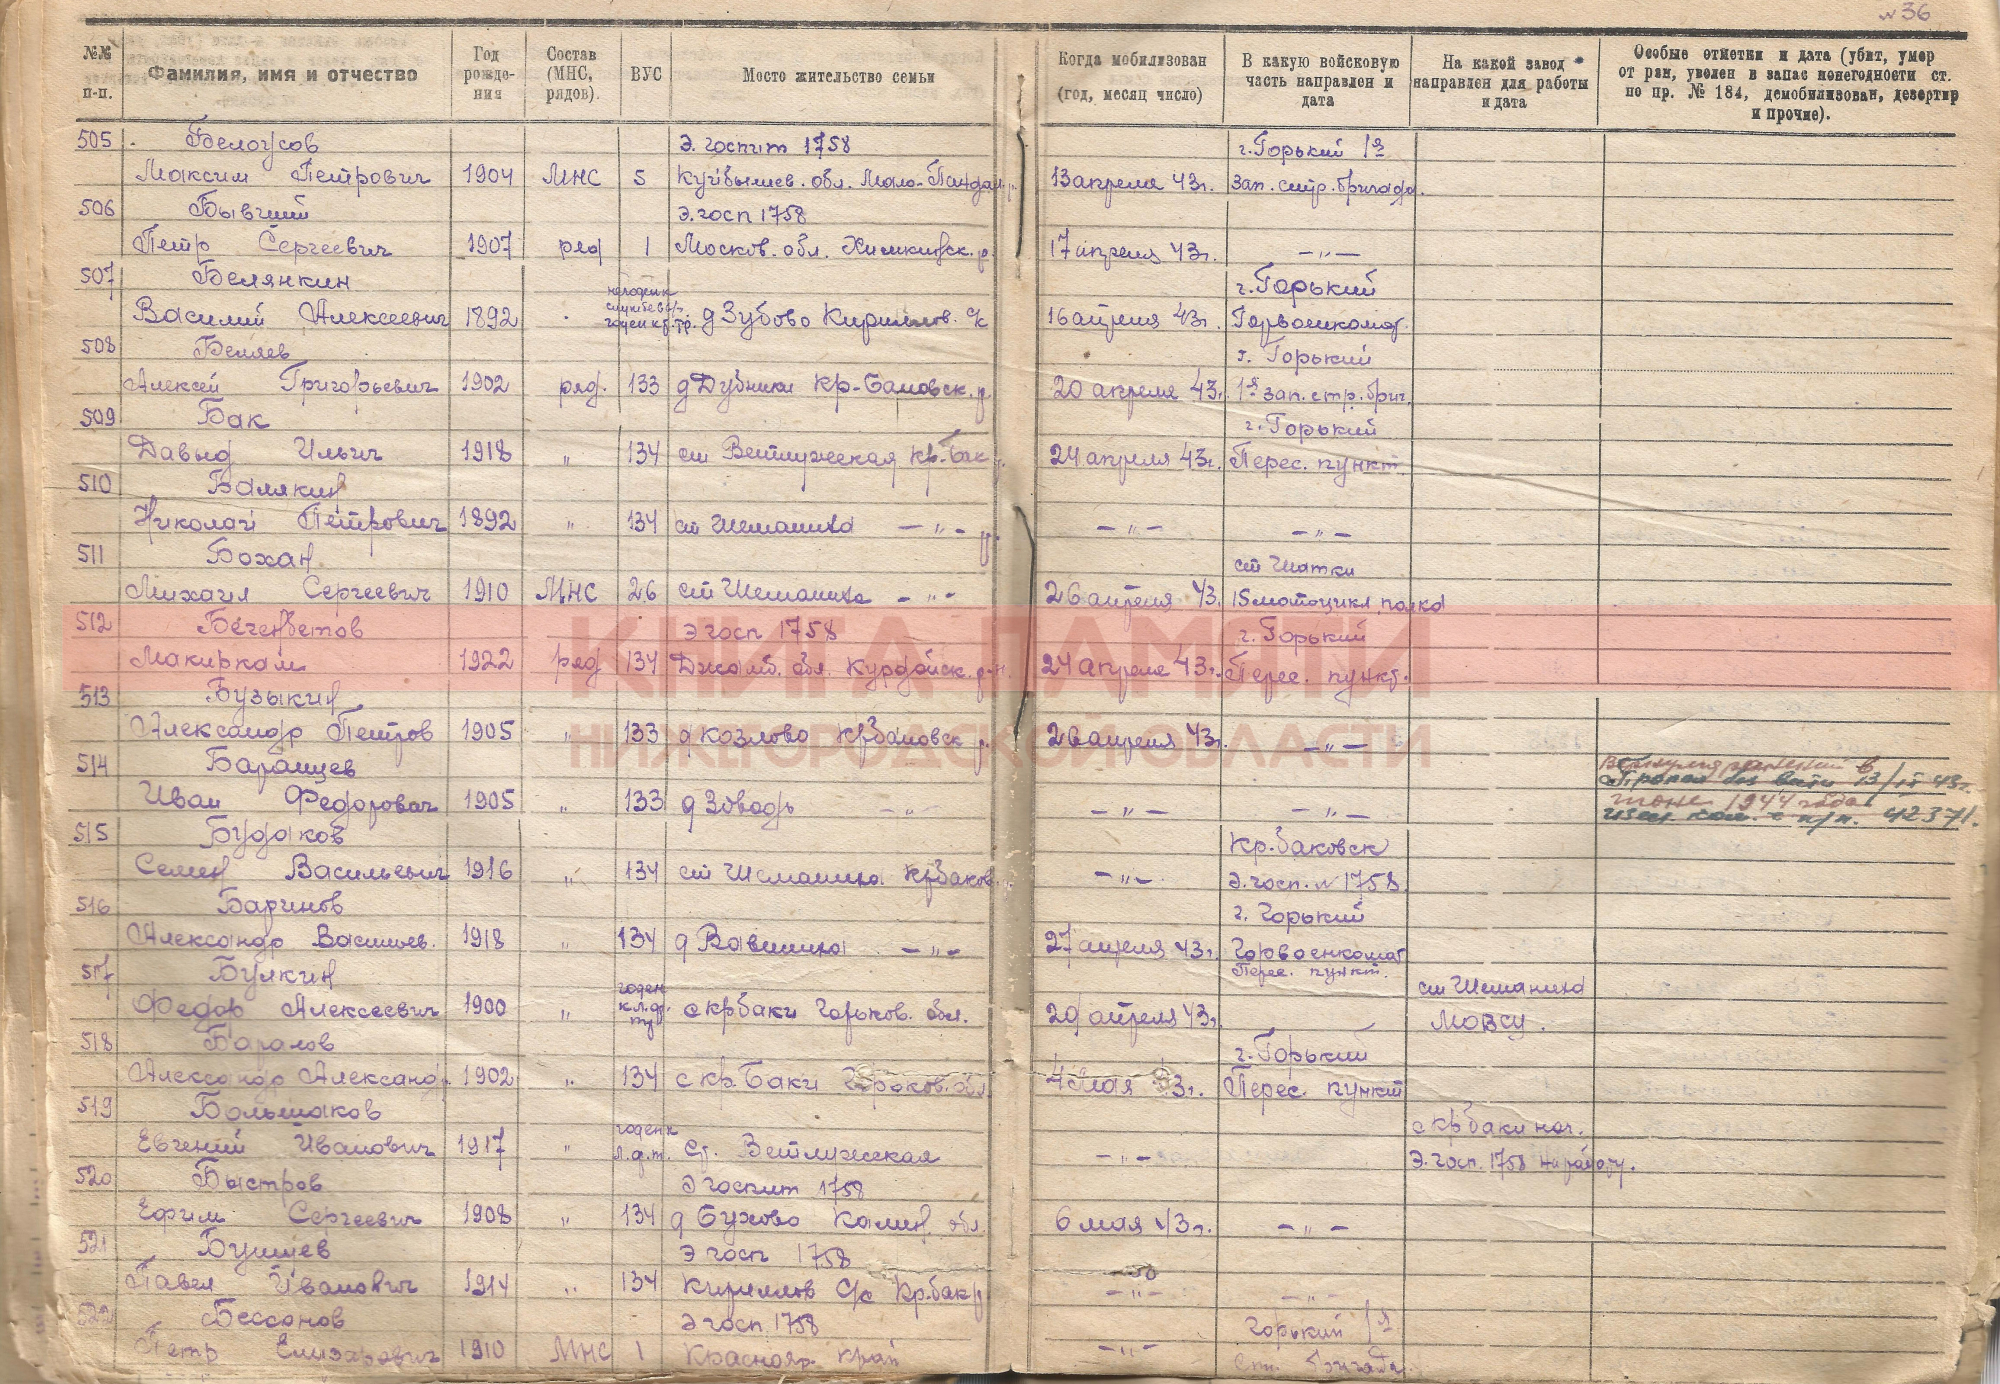 № 36
№№ п-п. Фамилия, имя и отчество Год рождения Состав (МНС, рядов). ВУС Место жительство семьи Когда мобилизован (год, месяц число) В какую войсковую часть направлен и дата На какой завод направлен для работы и дата Особые отметки и дата (убит, умер от ран, уволен в запас понегодности ст. по пр. № 184, демобилизован, дезертир и прочие).
505 Белоусов Э. госпит 1758 г. Горький 1я
Максим Петрович 1904 МНС 5 Куйбышев. обл. Мало- 13 апреля 43г. зап. стр. бригада
506 Бывший Э. госп 1758
Петр Сергеевич 1907 ряд 1 Москов. обл. Химкинск. р. 17 апреля 43г. — " —
507 Белянкин г. Горький
Василий Алексеевич 1892 д Зубово Кириллов. с/с 16 апреля 43г. Горвоенкомат
508 Беляев г. Горький
Алексей Григорьевич 1902 ряд. 133 д Дубники Кр-Баковск. р. 20 апреля 43г. 1я зап. стр. бриг.
509 Бак г. Горький
Давыд Ильич 1918 " 134 ст Ветлужская Кр-Бак р. 24 апреля 43г. Перес. пункт
510 Балякин
Николай Петрович 1892 " 134 ст Шеманиха — " — р. — " — — " —
511 Бохан ст Шатки
Михаил Сергеевич 1910 МНС 26 ст Шеманиха — " — 26 апреля 43. 15 мотоцикл. полка
512 Бегенбетов Э госп 1758 г. Горький
Макиркам 1922 ряд 134 Джамб. обл. Курдайск. р-н. 24 апреля 43г. Перес. пункт.
513 Бузыкин
Александр Петров 1905 " 133 д Козлово Крбаковск р. 26 апреля 43г. — " —
514 Баранцев
Иван Федорович 1905 " 133 д Зоводь — " — — " — — " —
Пропал без вести 13/ 43г.
июне 1944 года
п/п. 42371.
515 Будаков Кр. баковск
Семен Васильевич 1916 " 134 ст Шеманиха Крбаков. — " — Э. госп. № 1758
516 Баринов г. Горький
Александр Васильев. 1918 " 134 д Вавилиха — " — 27 апреля 43г. Горвоенкомат
Перес. пункт.
517 Булкин годен ст Шеманиха
Федор Алексеевич 1900 " с крбаки Горьков. обл. 29 апреля 43г. МОВСУ.
518 Баралов г. Горький
Александр Александр. 1902 " 134 с кр. Баки Горьков. обл 4 мая 43г. Перес. пункт
519 Большаков годен к с крбаки
Евгений Иванович 1917 " ст. Ветлужская — " — Э. госп. 1758 на работу.
520 Быстров Э госпит 1758
Ефим Сергеевич 1908 " 134 д Бухово Калин. обл. 6 мая 43г. — " —
521 Бушуев Э госп 1758
Павел Иванович 1914 " 134 Кириллов с/с Кр. бак р — " — — " —
522 Бессонов Э госп. 1758 Горький 1я
Петр Елизарович 1910 МНС 1 Краснояр. край — " —
КНИГА ПАМЯТИ
НИЖЕГОРОДСКОЙ ОБЛАСТИ